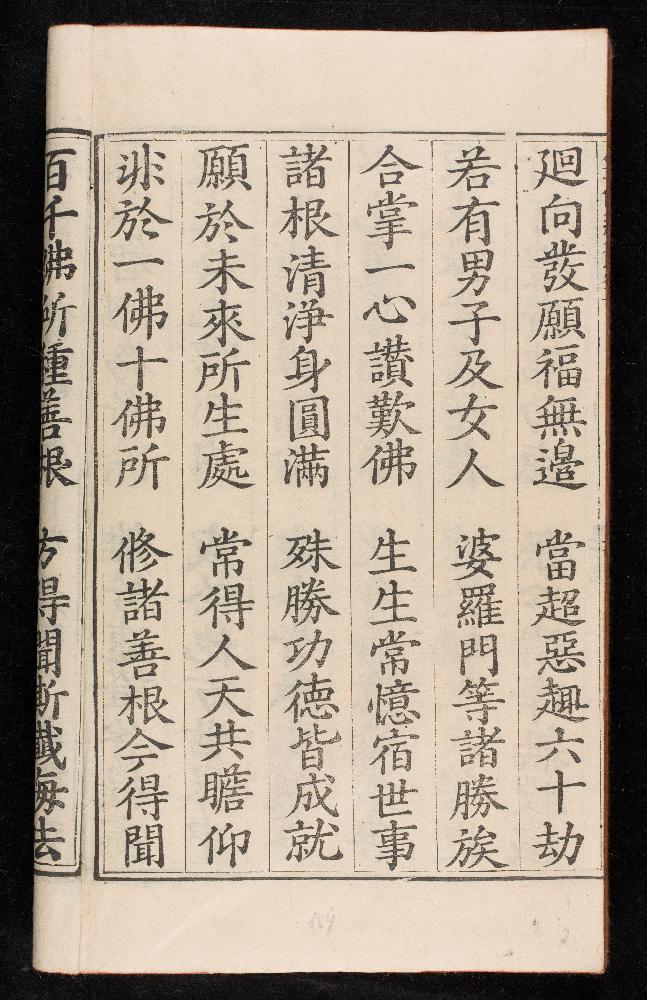 廻向發願福無邉　當超惡趣六十劫
若有男子及女人　婆羅門等諸勝族
合掌一心讃歎佛　生生常憶宿世事
諸根清淨身圓滿　殊勝功德皆成就
願於未來所生處　常得人天共瞻仰
非於一佛十佛所　修諸善根今得聞
百千佛所種善根　方得聞斯懺悔法